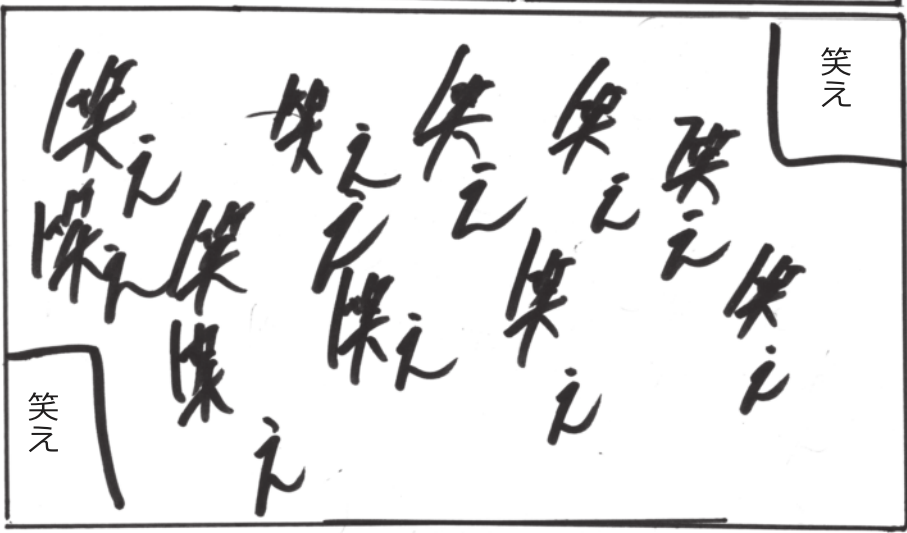 笑え
笑え
笑え
笑え
笑え
笑え
笑え
笑え
笑え
笑え
笑え
笑え
笑え